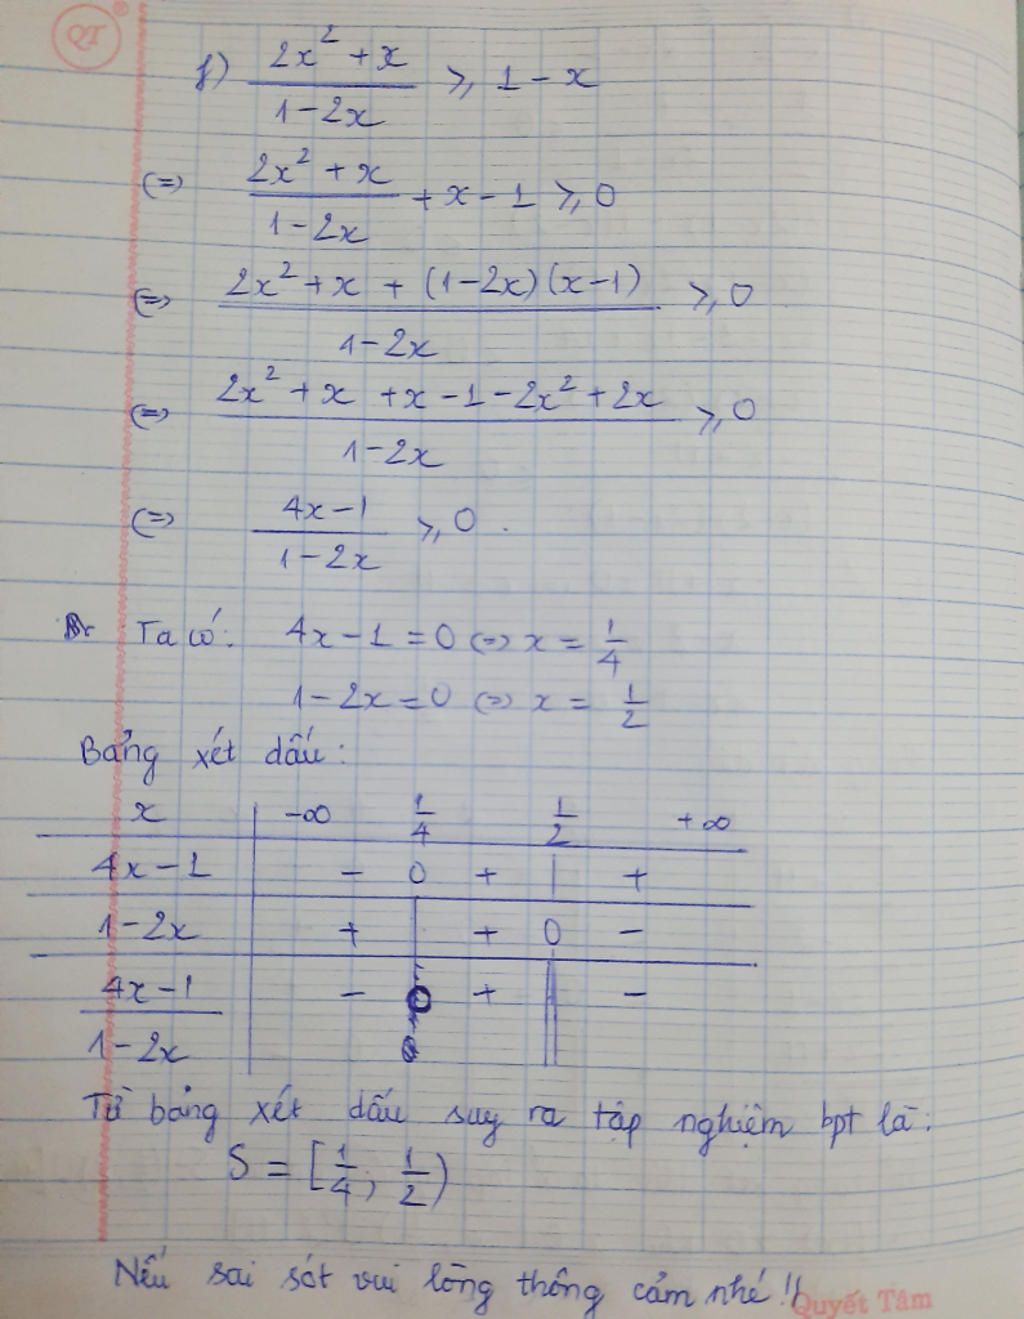 QT
f) (2x² + x)/(1 - 2x) ≥ 1 - x
(=) (2x² + x)/(1 - 2x) + x - 1 ≥ 0
(=) (2x² + x + (1-2x)(x-1))/(1 - 2x) ≥ 0
(=) (2x² + x + x - 1 - 2x² + 2x)/(1 - 2x) ≥ 0
(=) (4x - 1)/(1 - 2x) ≥ 0.
Ta có: 4x - 1 = 0 (=) x = 1/4
1 - 2x = 0 (=) x = 1/2
Bảng xét dấu:
x | -∞ 1/4 1/2 +∞
4x - 1 | - 0 + | +
1 - 2x | + | + 0 -
(4x - 1)/(1 - 2x) | - 0 + || -
Từ bảng xét dấu suy ra tập nghiệm bpt là:
S = [1/4; 1/2)
Nếu sai sót vui lòng thông cảm nhé!!
Quyết Tâm